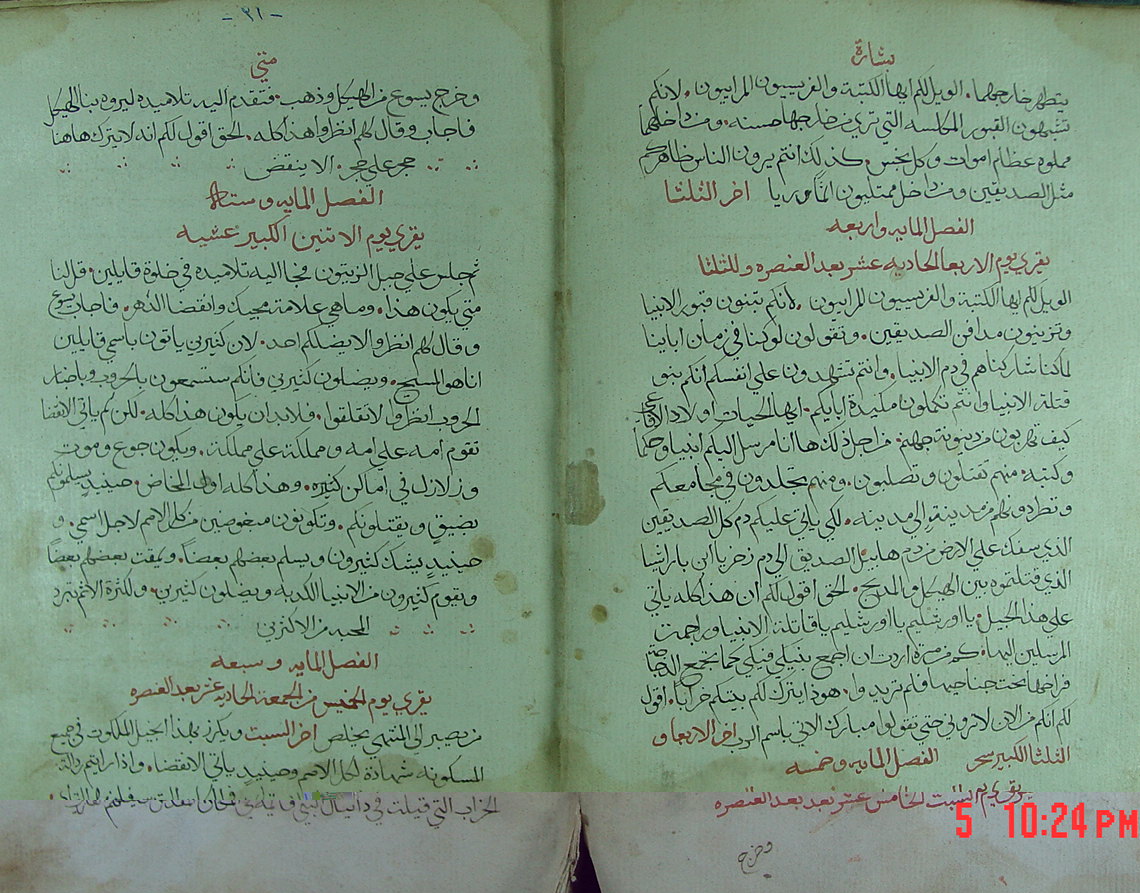 بشارة
يتطهر خارجهما. الويل لكم ايها الكتبة والفريسيون المرايون. لانكم
تشبهون القبور المكلسه التي ترى من خارجها حسنه. ومن داخلها
مملوه عظام اموات وكل نجس. كذلك انتم يرون الناس ظاهركم
مثل الصديقين ومن داخل ممتليون اثم وريا اخر الثلثا
الفصل المايه واربعه
يقري يوم الاربعا الحاديه عشر بعد العنصره وللثلثا
الويل لكم ايها الكتبة والفريسيون المرايون. لانكم تبنون قبور الانبيا
وتزينون مدافن الصديقين. وتقولون لو كنا في زمان اباينا
لما كنا شاركناهم في دم الانبيا. وانتم تشهدون علي انفسكم انكم بنو
قتلة الانبيا وانتم تكملون مكيدة ابايكم. ايها الحيات اولاد الافاعي
كيف تهربون من دينونة جهنم. من اجل ذلك هاانا مرسل اليكم انبيا وحكما
وكتبه. منهم تقتلون وتصلبون. ومنهم تجلدون في مجامعكم
وتطردونهم من مدينه الي مدينه. لكي ياتي عليكم دم كل الصديقين
الذي سفك علي الارض من دم هابيل الصديق الي دم زخريا ابن باراشيا
الذي قتلتموه بين الهيكل والمذبح. الحق اقول لكم ان هذا كله ياتي
علي هذا الجيل. يا اورشليم يا اورشليم يا قاتلة الانبيا وراجمت
المرسلين اليها. كم من مرة اردت ان اجمع بنيكي فيكي كما تجمع الدجاجة
فراخها تحت جناحيها فلم تريدوا. هوذا يترك لكم بيتكم خرابا. اقول
لكم انكم من الان لا تروني حتي تقولوا مبارك الاتي باسم الرب اخر الاربعا و
الثلثا الكبير سحر الفصل المايه وخمسه
يقري يوم السبت الخامس عشر بعد العنصره
وخرج
- ٢١ -
متي
وخرج يسوع من الهيكل وذهب. فتقدم اليه تلاميذه ليروه بنا الهيكل
فاجاب وقال لهم انظروا هذا كله. الحق اقول لكم انه لا يترك هاهنا
حجر علي حجر. الا ينقض
الفصل المايه وستة
يقري يوم الاتنين الكبير عشيه
ثم جلس علي جبل الزيتون فجا اليه تلاميذه في خلوة قايلين. قل لنا
متي يكون هذا. وما هي علامة مجيك وانقضا الدهر. فاجاب يسوع
وقال لهم انظروا لا يضلكم احد. لان كثيرين ياتون باسمي قايلين
انا هو المسيح. ويضلون كثيرين فانكم ستسمعون بالحروب وباخبار
الحروب انظروا لا تقلقوا. فلابد ان يكون هذا كله. لكن لم ياتي الانقضا
تقوم امه علي امه ومملكة علي مملكة. ويكون جوع وموت
وزلازل في اماكن كثيره. وهذا كله اول المخاض. حينيذ يسلمونكم
بضيق ويقتلونكم. وتكونون مبغوضين من كل الامم لاجل اسمي. و
حينيذ يشك كثيرون ويسلم بعضهم بعضا. ويمقت بعضهم بعضا
ويقوم كثيرون من الانبيا الكدبه ويضلون كثيرين. ولكثرة الاثم تبرد
المحبه من الاكثرين
الفصل المايه وسبعه
يقري يوم الخميس من الجمعة الحاديه عشر بعد العنصره
من يصبر الي المنتهي يخلص اخر السبت ويكرز بهذا انجيل الملكوت في جميع
المسكونه شهادة لكل الامم وحينيذ ياتي الانقضا. واذا رايتم رذالة
الخراب التي قيلت في دانيال النبي
5 10:24 PM